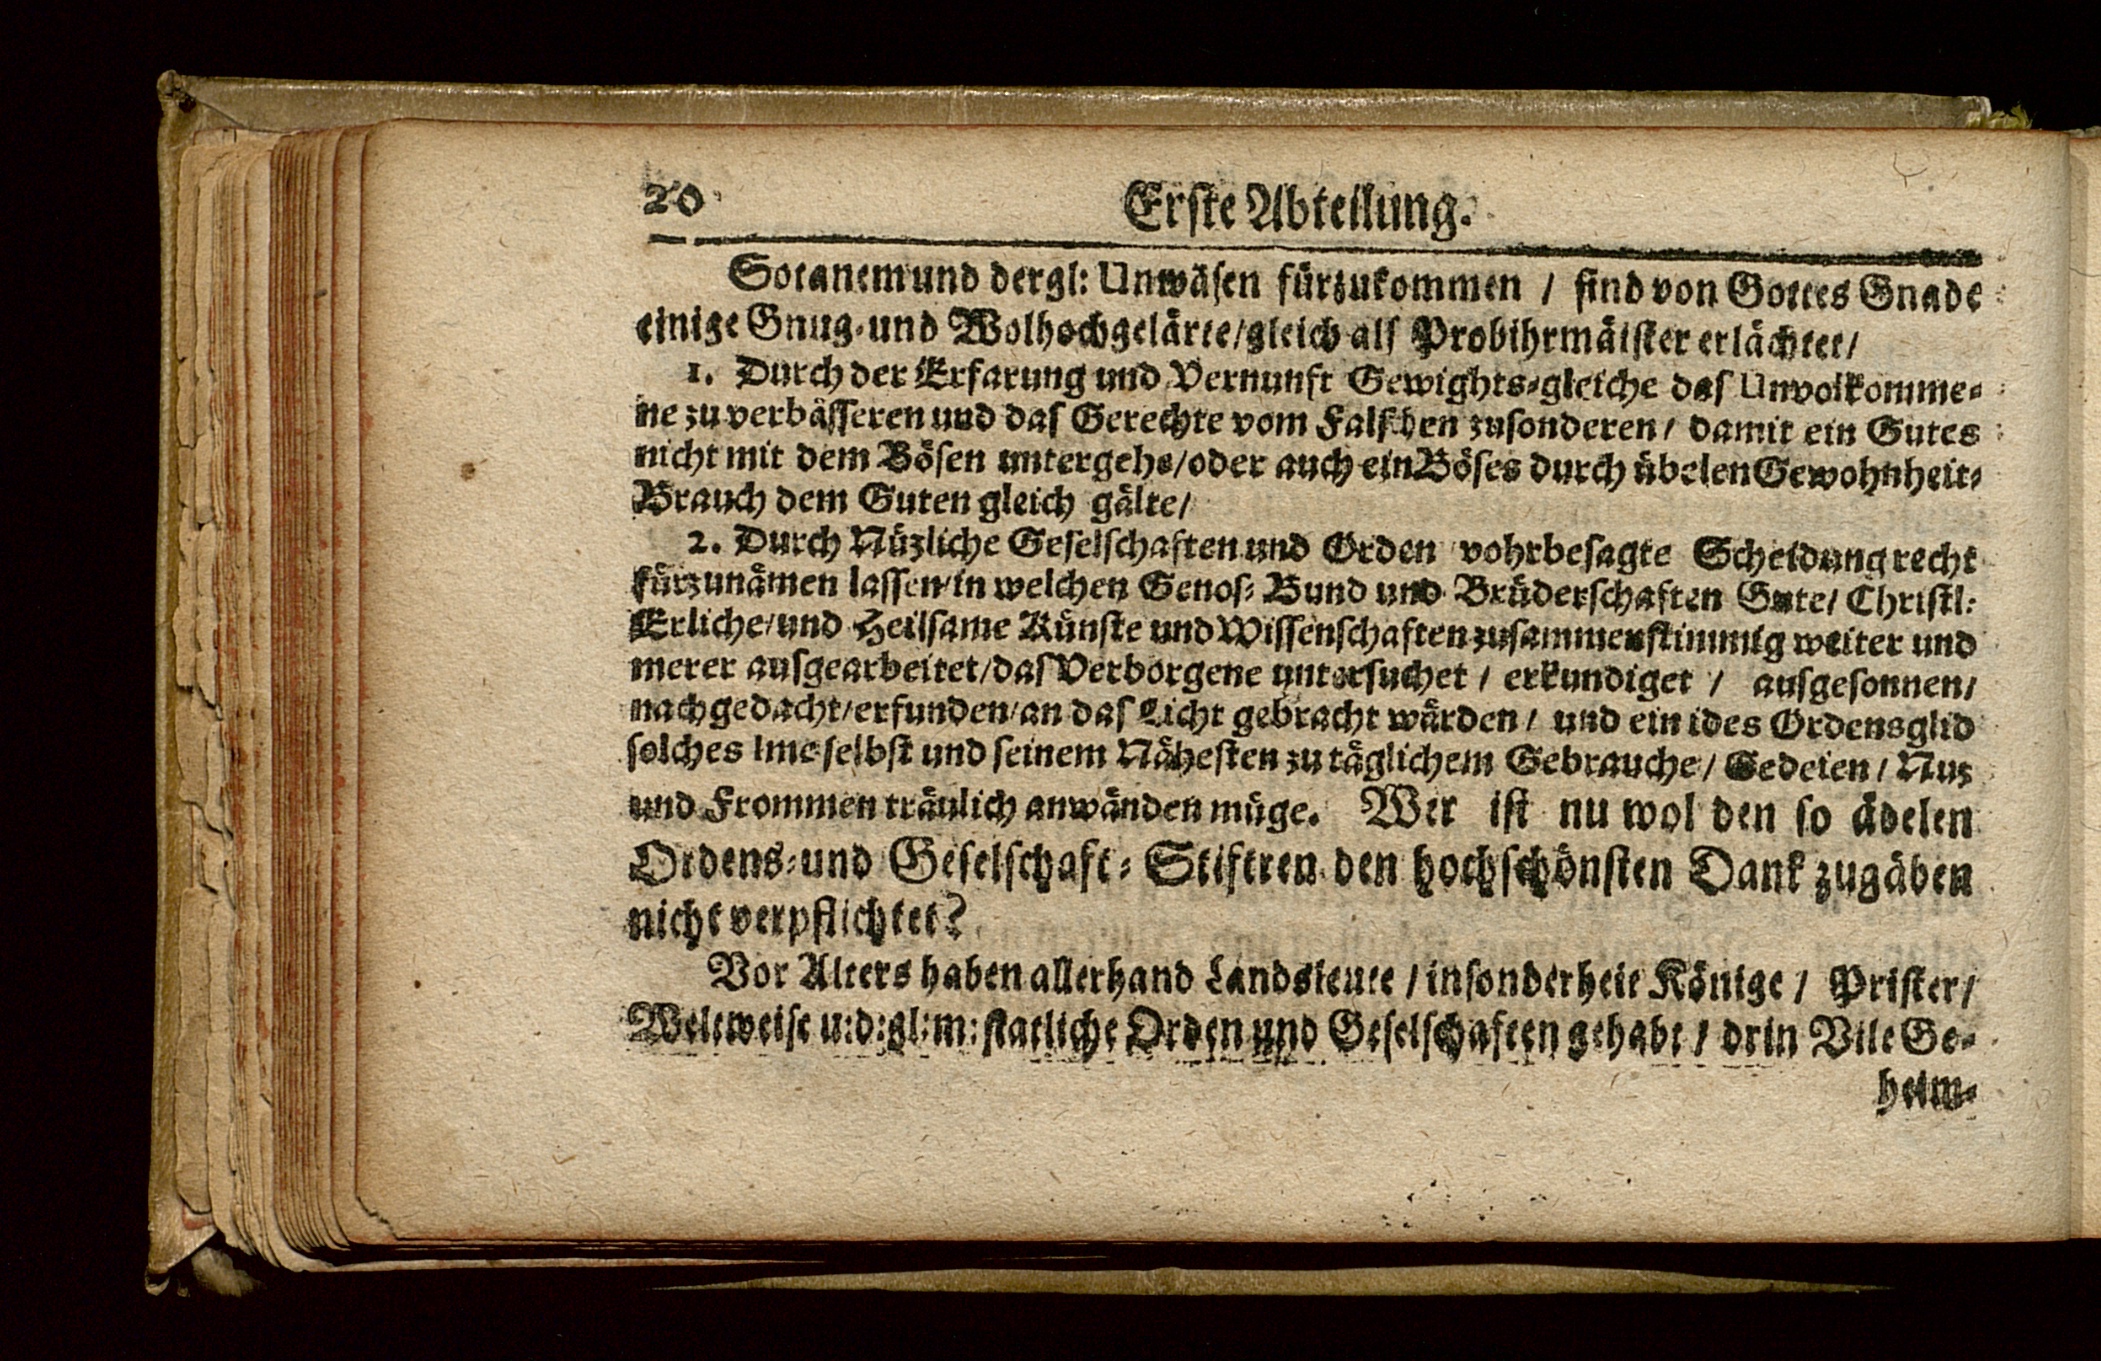 20 Erste Abteilung.
Sotanem und dergl: Unwäsen fürzukommen / sind von Gottes Gnade
einige Gnug- und Wolhochgelärte/gleich als Probihrmäister erlächtet/
1. Durch der Erfarung und Vernunft Gewights-gleiche das Unvolkomme-
ne zu verbässeren und das Gerechte vom Falschen zusonderen/ damit ein Gutes
nicht mit dem Bösen untergehe/oder auch ein Böses durch übelen Gewohnheit-
Brauch dem Guten gleich gälte/
2. Durch Nüzliche Geselschaften und Orden vohrbesagte Scheidung recht
fürzunämen lassen/in welchen Genos- Bund und Brüderschaften Gute/ Christl:
Erliche/und Heilsame Künste und Wissenschaften zusammenstimmig weiter und
merer ausgearbeitet/das Verborgene untersuchet / erkundiget / ausgesonnen/
nachgedacht/erfunden/an das Licht gebracht würden/ und ein ides Ordensglid
solches ime selbst und seinem Nähesten zu täglichem Gebrauche/ Gedeien/ Nuz
und Frommen träulich anwänden müge. Wer ist nu wol den so ädelen
Ordens- und Geselschaft- Stiftren den hochschönsten Dank zugäben
nicht verpflichtet?
Vor Alters haben allerhand Landsleute / insonderheit Könige / Prister/
Weltweise u:d:gl:m: statliche Orden und Geselschaften gehabt / drin Vile Ge-
heim-